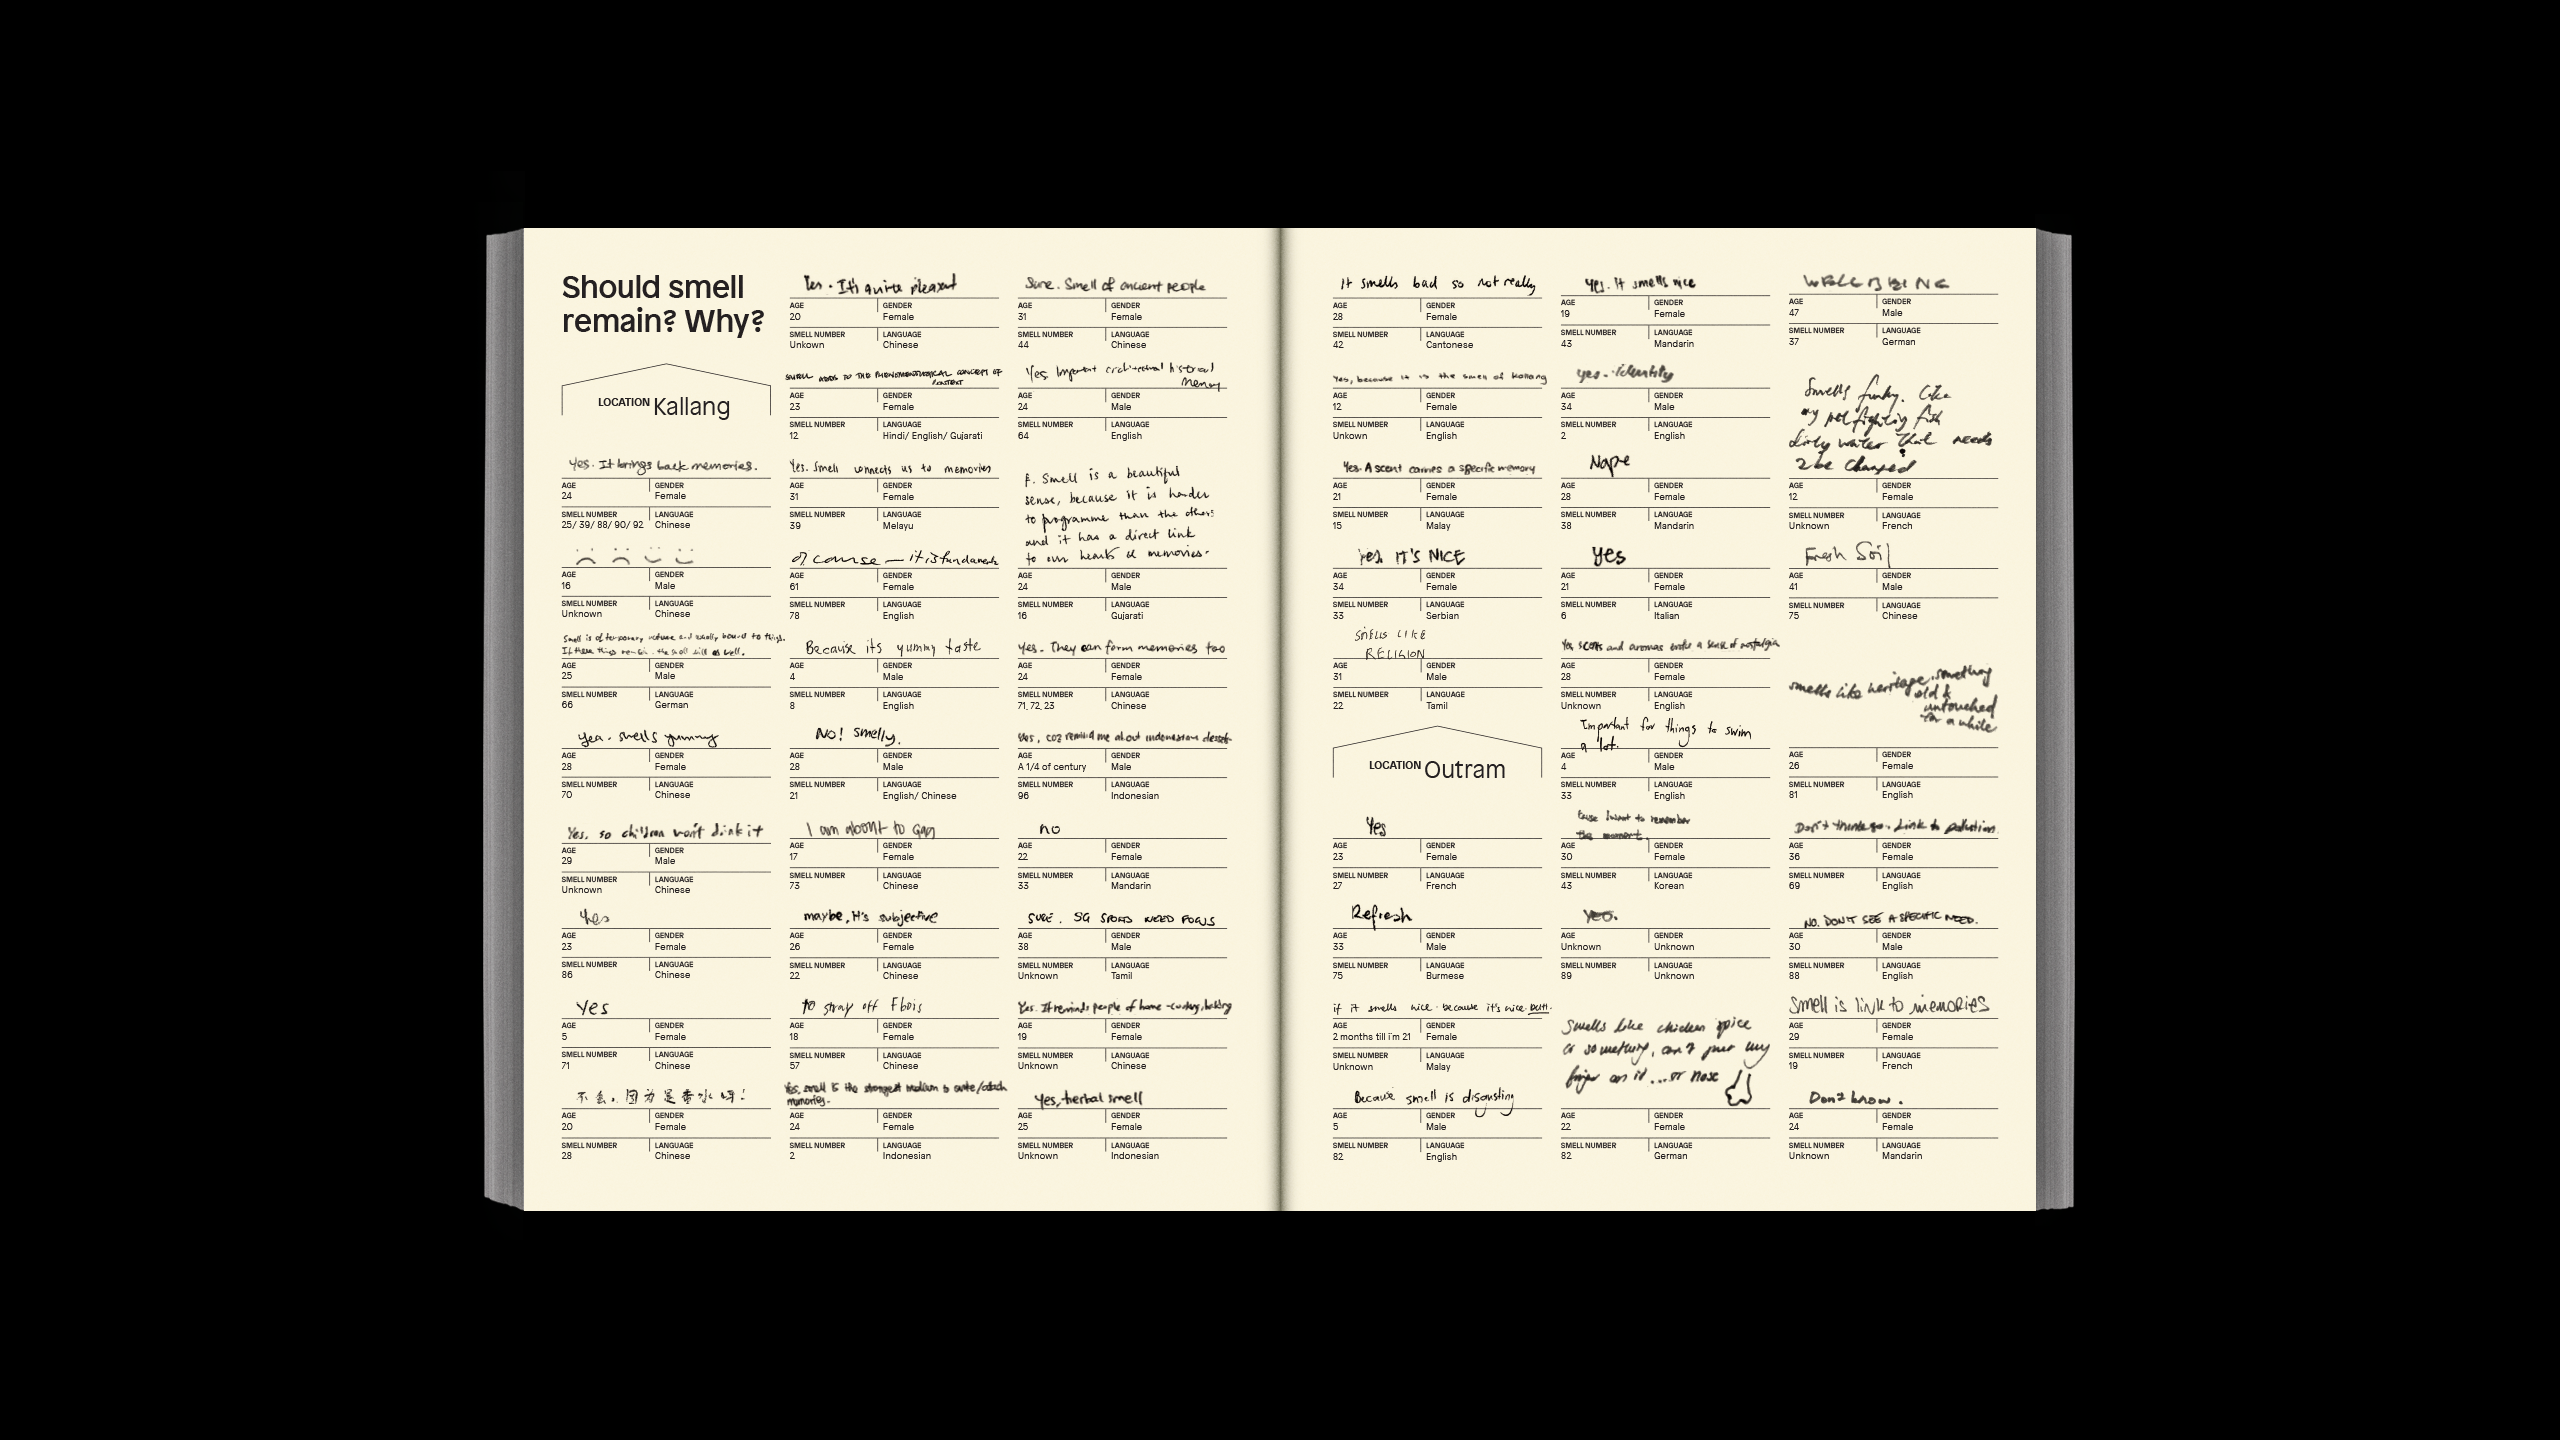 Should smell
remain? Why?
LOCATION Kallang
Yes. It brings back memories.
AGE GENDER
24 Female
SMELL NUMBER LANGUAGE
25/ 39/ 88/ 90/ 92 Chinese
AGE GENDER
16 Male
SMELL NUMBER LANGUAGE
Unknown Chinese
Smell is of temporary nature and usually bound to things.
If these things remain, the smell will as well.
AGE GENDER
25 Male
SMELL NUMBER LANGUAGE
66 German
yea. smells yummy
AGE GENDER
28 Female
SMELL NUMBER LANGUAGE
70 Chinese
Yes, so children won't drink it
AGE GENDER
29 Male
SMELL NUMBER LANGUAGE
Unknown Chinese
Yes
AGE GENDER
23 Female
SMELL NUMBER LANGUAGE
86 Chinese
Yes
AGE GENDER
5 Female
SMELL NUMBER LANGUAGE
71 Chinese
不会，因为是香水呀！
AGE GENDER
20 Female
SMELL NUMBER LANGUAGE
28 Chinese
Yes. It's quite pleasant
AGE GENDER
20 Female
SMELL NUMBER LANGUAGE
Unkown Chinese
SMELL ADDS TO THE PHENOMENOLOGICAL CONCEPT OF
CONTEXT
AGE GENDER
23 Female
SMELL NUMBER LANGUAGE
12 Hindi/ English/ Gujarati
Yes. Smell connects us to memories
AGE GENDER
31 Female
SMELL NUMBER LANGUAGE
39 Melayu
Of course — it is fundament
AGE GENDER
61 Female
SMELL NUMBER LANGUAGE
78 English
Because its yummy taste
AGE GENDER
4 Male
SMELL NUMBER LANGUAGE
8 English
No! Smelly.
AGE GENDER
28 Male
SMELL NUMBER LANGUAGE
21 English/ Chinese
I am about to gag
AGE GENDER
17 Female
SMELL NUMBER LANGUAGE
73 Chinese
maybe, it's subjective
AGE GENDER
26 Female
SMELL NUMBER LANGUAGE
22 Chinese
to stray off
AGE GENDER
18 Female
SMELL NUMBER LANGUAGE
57 Chinese
Yes, smell is the strongest medium to evoke/attach
memories.
AGE GENDER
24 Female
SMELL NUMBER LANGUAGE
2 Indonesian
Sure. Smell of ancient people
AGE GENDER
31 Female
SMELL NUMBER LANGUAGE
44 Chinese
Yes. Important architectural historical
memory
AGE GENDER
24 Male
SMELL NUMBER LANGUAGE
64 English
Smell is a beautiful
sense, because it is harder
to programme than the others
and it has a direct link
to our hearts & memories.
AGE GENDER
24 Male
SMELL NUMBER LANGUAGE
16 Gujarati
Yes. They can form memories too
AGE GENDER
24 Female
SMELL NUMBER LANGUAGE
71, 72, 23 Chinese
Yes, coz remind me about indonesian dessert
AGE GENDER
A 1/4 of century Male
SMELL NUMBER LANGUAGE
96 Indonesian
no
AGE GENDER
22 Female
SMELL NUMBER LANGUAGE
33 Mandarin
SURE. SG SPORTS NEED FOCUS
AGE GENDER
38 Male
SMELL NUMBER LANGUAGE
Unknown Tamil
Yes. It reminds people of home - cooking, baking
AGE GENDER
19 Female
SMELL NUMBER LANGUAGE
Unknown Chinese
Yes, herbal smell
AGE GENDER
25 Female
SMELL NUMBER LANGUAGE
Unknown Indonesian
It smells bad so not really
AGE GENDER
28 Female
SMELL NUMBER LANGUAGE
42 Cantonese
Yes, because it is the smell of Kallang
AGE GENDER
12 Female
SMELL NUMBER LANGUAGE
Unkown English
Yes. A scent carries a specific memory
AGE GENDER
21 Female
SMELL NUMBER LANGUAGE
15 Malay
yes, IT'S NICE
AGE GENDER
34 Female
SMELL NUMBER LANGUAGE
33 Serbian
SMELLS LIKE
RELIGION
AGE GENDER
31 Male
SMELL NUMBER LANGUAGE
22 Tamil
LOCATION Outram
Yes
AGE GENDER
23 Female
SMELL NUMBER LANGUAGE
27 French
Refresh
AGE GENDER
33 Male
SMELL NUMBER LANGUAGE
75 Burmese
if it smells nice. because it's nice.
AGE GENDER
2 months till i'm 21 Female
SMELL NUMBER LANGUAGE
Unknown Malay
Because smell is disgusting
AGE GENDER
5 Male
SMELL NUMBER LANGUAGE
82 English
yes. It smells nice
AGE GENDER
19 Female
SMELL NUMBER LANGUAGE
43 Mandarin
yes. identity
AGE GENDER
34 Male
SMELL NUMBER LANGUAGE
2 English
Nope
AGE GENDER
28 Female
SMELL NUMBER LANGUAGE
38 Mandarin
yes
AGE GENDER
21 Female
SMELL NUMBER LANGUAGE
6 Italian
Yes scents and aromas evoke a sense of nostalgia
AGE GENDER
28 Female
SMELL NUMBER LANGUAGE
Unknown English
Important for things to swim
a lot.
AGE GENDER
4 Male
SMELL NUMBER LANGUAGE
33 English
Cause I want to remember
the moment.
AGE GENDER
30 Female
SMELL NUMBER LANGUAGE
43 Korean
AGE GENDER
Unknown Unknown
SMELL NUMBER LANGUAGE
89 Unknown
Smells like chicken spice
or something, can't put my
finger on it ... or nose
AGE GENDER
22 Female
SMELL NUMBER LANGUAGE
82 German
WELLBEING
AGE GENDER
47 Male
SMELL NUMBER LANGUAGE
37 German
Smells funky. Like
my pet fighting fish
dirty water that needs
2 be changed
AGE GENDER
12 Female
SMELL NUMBER LANGUAGE
Unknown French
Fresh Soil
AGE GENDER
41 Male
SMELL NUMBER LANGUAGE
75 Chinese
smells like heritage, something
old &
untouched
for a while
AGE GENDER
26 Female
SMELL NUMBER LANGUAGE
81 English
Don't think so. Link to pollution
AGE GENDER
36 Female
SMELL NUMBER LANGUAGE
69 English
NO. DON'T SEE A SPECIFIC NEED.
AGE GENDER
30 Male
SMELL NUMBER LANGUAGE
88 English
Smell is link to memories
AGE GENDER
29 Female
SMELL NUMBER LANGUAGE
19 French
Don't know.
AGE GENDER
24 Female
SMELL NUMBER LANGUAGE
Unknown Mandarin